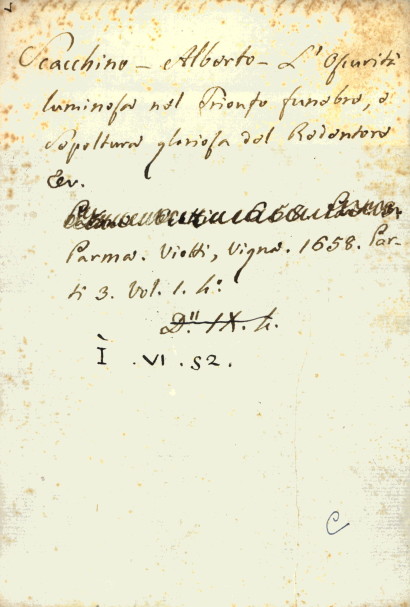 Scacchino - Alberto - L'Oscurità
luminosa nel Trionfo funebre, e
Sepoltura gloriosa del Redentore
&c.
Parma. Viotti, Vigna. 1658. Par-
ti 3. Vol. 1. 4°
D." IX. 4.
I . VI . 52.
C